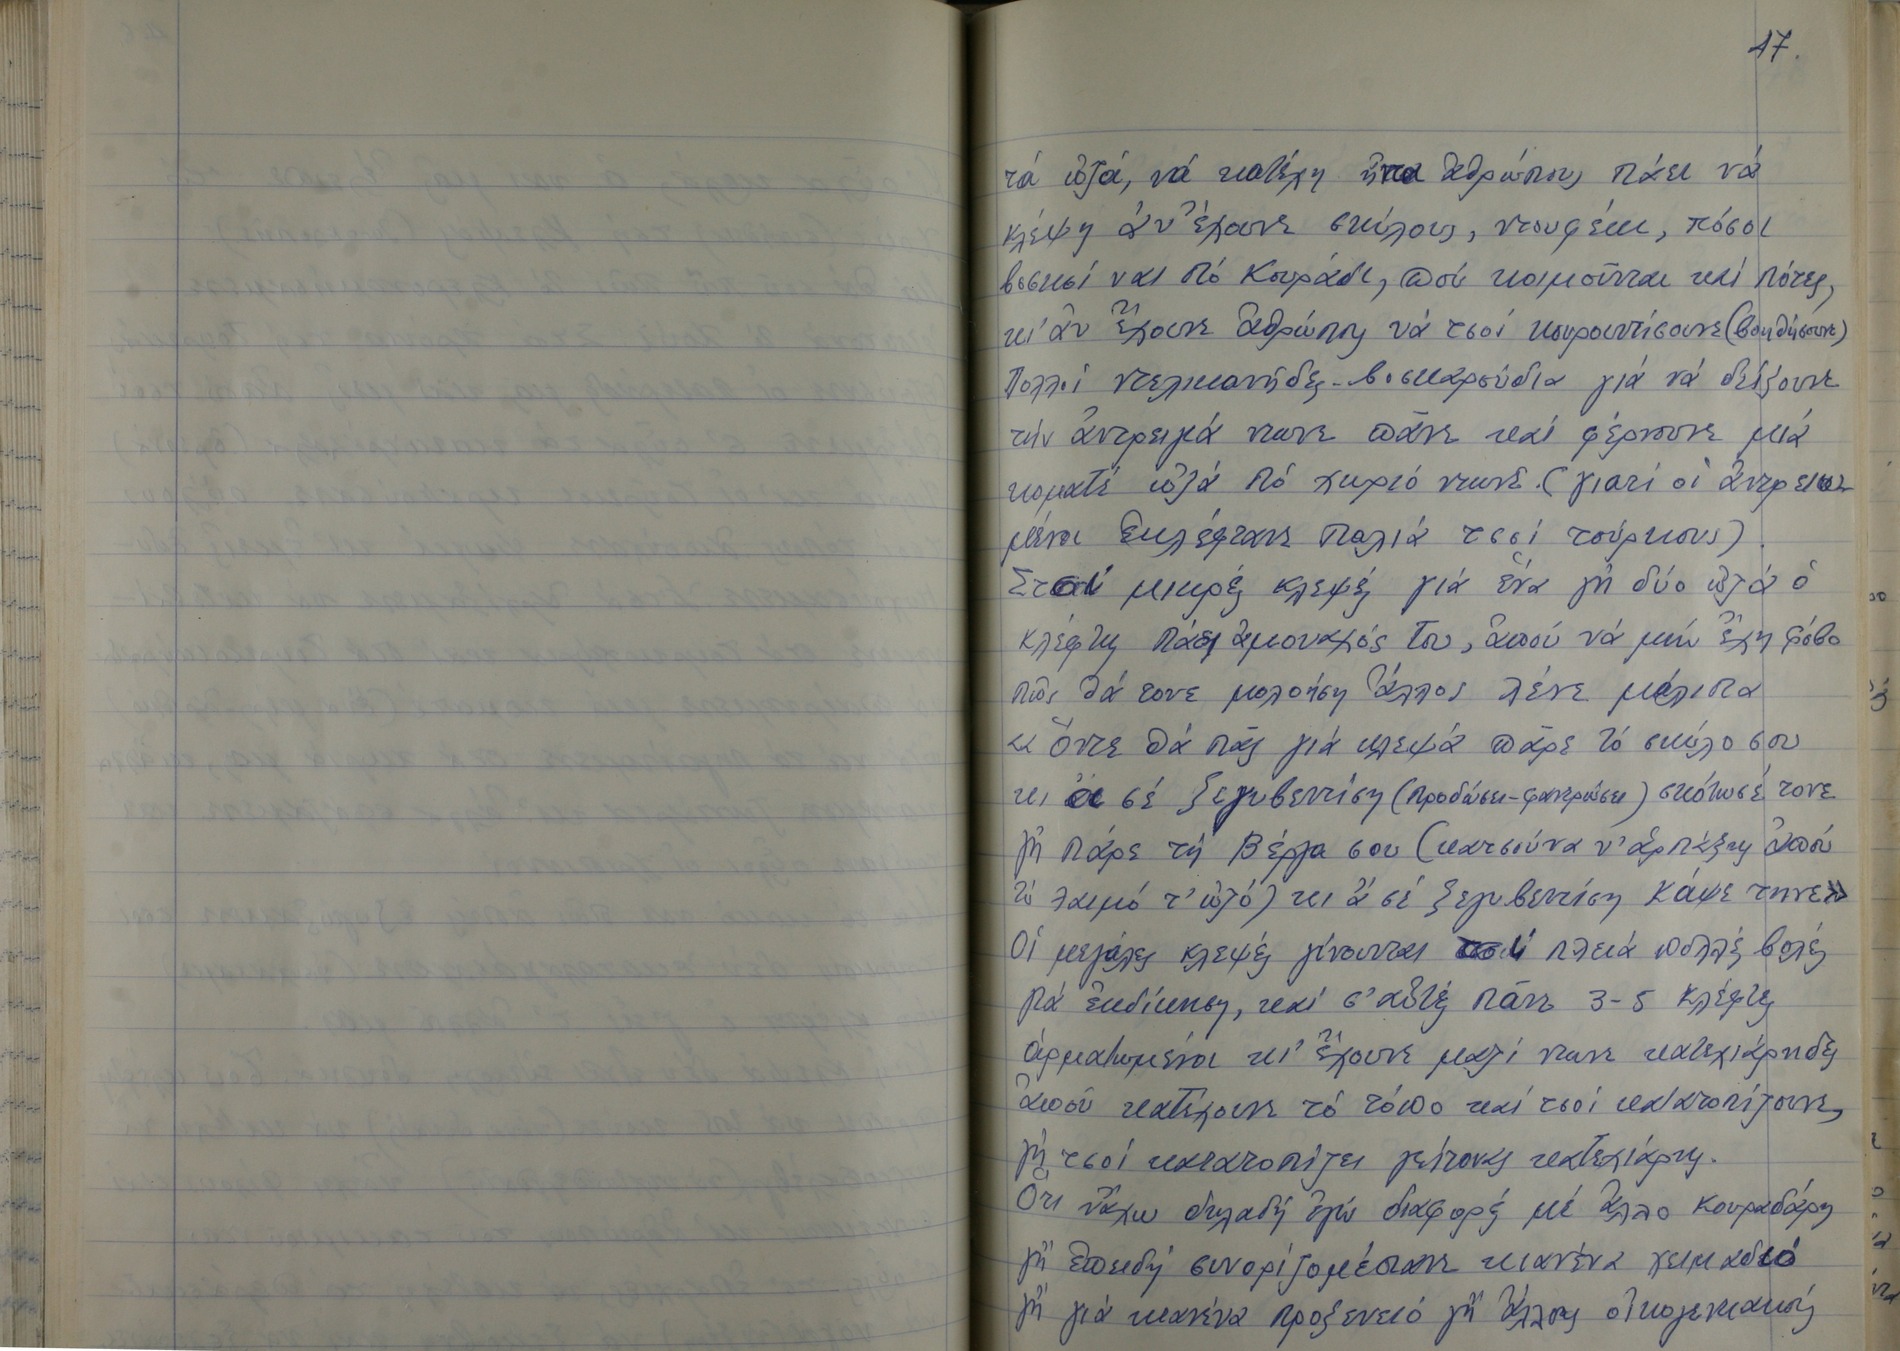 17.
τά ὠζά, νά κατέχῃ ἤντα ἀθρώπους πάει νά
κλέψῃ ἄν ἔχουνε σκύλους, ντουφέκι, πόσοι
βοσκοί ναι στό κουράδι, ποῦ κοιμοῦνται καί πότες,
κι' ἄν ἔχουνε ἀθρώπους νά τσοί κουραντίσουνε (βοηθήσουνε)
Πολλοί ντελικανῆδες - βοσκαρούδια γιά νά δείξουνε
τήν ἀντρειγιά ντωνε πᾶνε καί φέρνουνε μιά
κοματέ ὠζά στό χωριό ντωνε. (γιατί οἱ ἀντρειω
μένοι ἐκλέφτανε παλιά τσοί τούρκους).
Στσί μικρές κλεψές γιά ἕνα γή δύο ὠζά ὁ
κλέφτης πάει ἀμοναχός του, ἀπού νά μήν ἔχῃ φόβο
πῶς θά τονε μολοήσῃ ἄλλος λένε μάλιστα
« Ὄντε θά πᾶς γιά κλεψά πᾶρε τό σκύλο σου
κι ἄ σέ ξεγυβεντίσῃ (προδώσει - φανερώσει) σκότωσέ τονε
γή πάρε τή βέργα σου (κατσούνα ν' ἁρπάξῃς ἀπού
τό λαιμό τ' ὠζό) κι ἄ σέ ξεγυβεντίσῃ κάψε τηνε»
Οἱ μεγάλες κλεψές γίνουνται πλειά πολλές βολές
γιά ἐκδίκηση, καί σ' αὐτές πᾶνε 3-5 κλέφτες
ἁρματωμένοι κι' ἔχουνε μαζί ντωνε κατεχιάρηδες
ἀπού κατέχουνε τό τόπο καί τσοί κατατοπίζουνε,
γή τσοί κατατοπίζει γείτονας κατεχιάρης.
Ὅτι νἄχω δηλαδή ἐγώ διαφορές μέ ἄλλο κουραδάρη
γή ἐπειδή συνοριζομέστανε κιανένα χειμαδιό
γή γιά κιανένα προξενειό γή ἄλλους οἰκογενειακούς